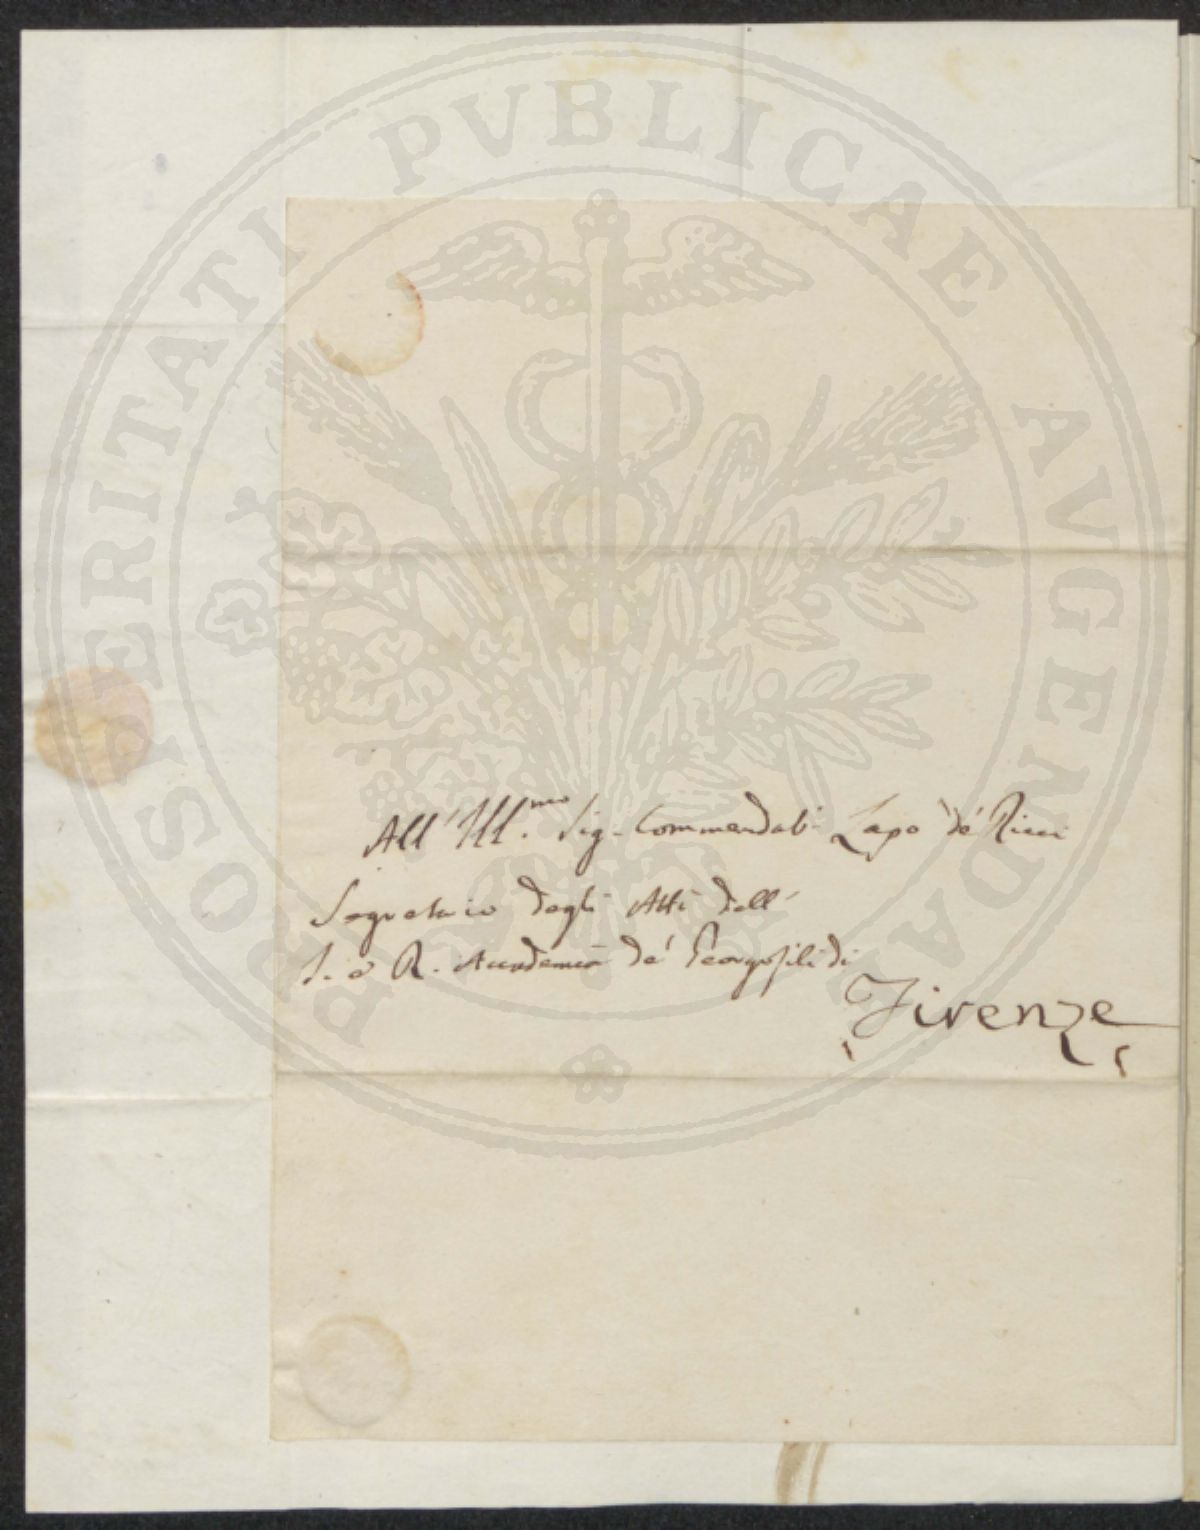 PROSPERITATI PVBLICAE AVGENDAE
All' Ill.mo Sig. Commendat. Lapo de' Ricci
Segretario degli Atti dell'
I. e R. Accademia de' Georgofili di
Firenze